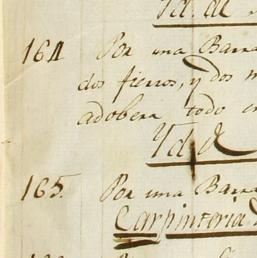 Yd. de
164 Por una Barra
dos fierros, y dos
adobera todo en
Yd. de
165. Por una Barra
Carpinteria